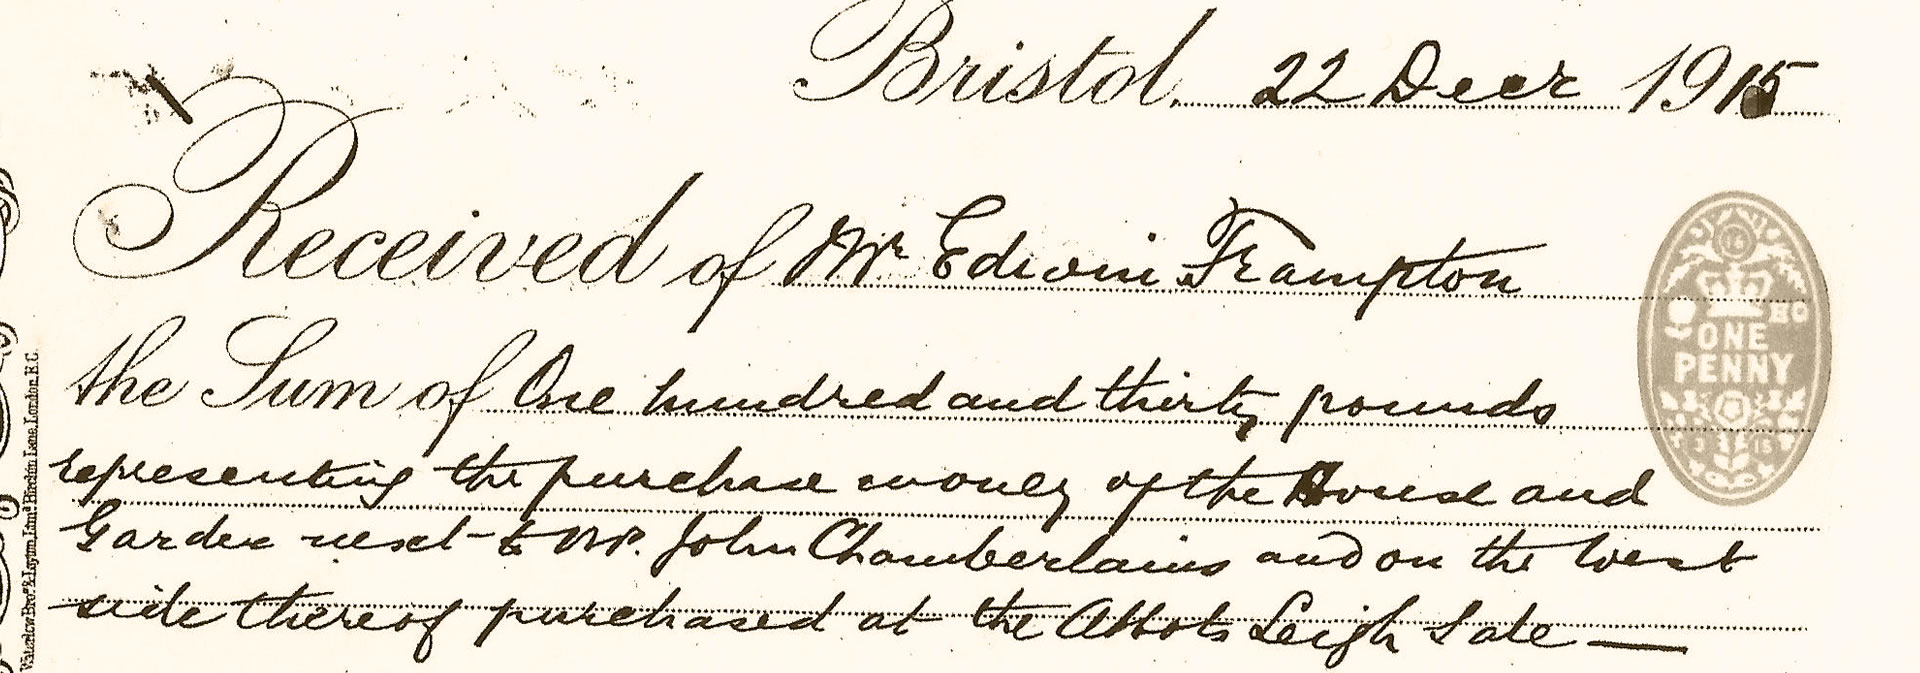 Bristol, 22 Decr 1915
Received of Mr Edwin Frampton
the Sum of One hundred and thirty pounds
representing the purchase money of the House and
Garden next to Mr. John Chamberlains and on the West
side thereof purchased at the Abbots Leigh Sale —
16
ONE
PENNY
3 15
Waterlow Bros. & Layton, Lim.d Birchin Lane, London, E.C.